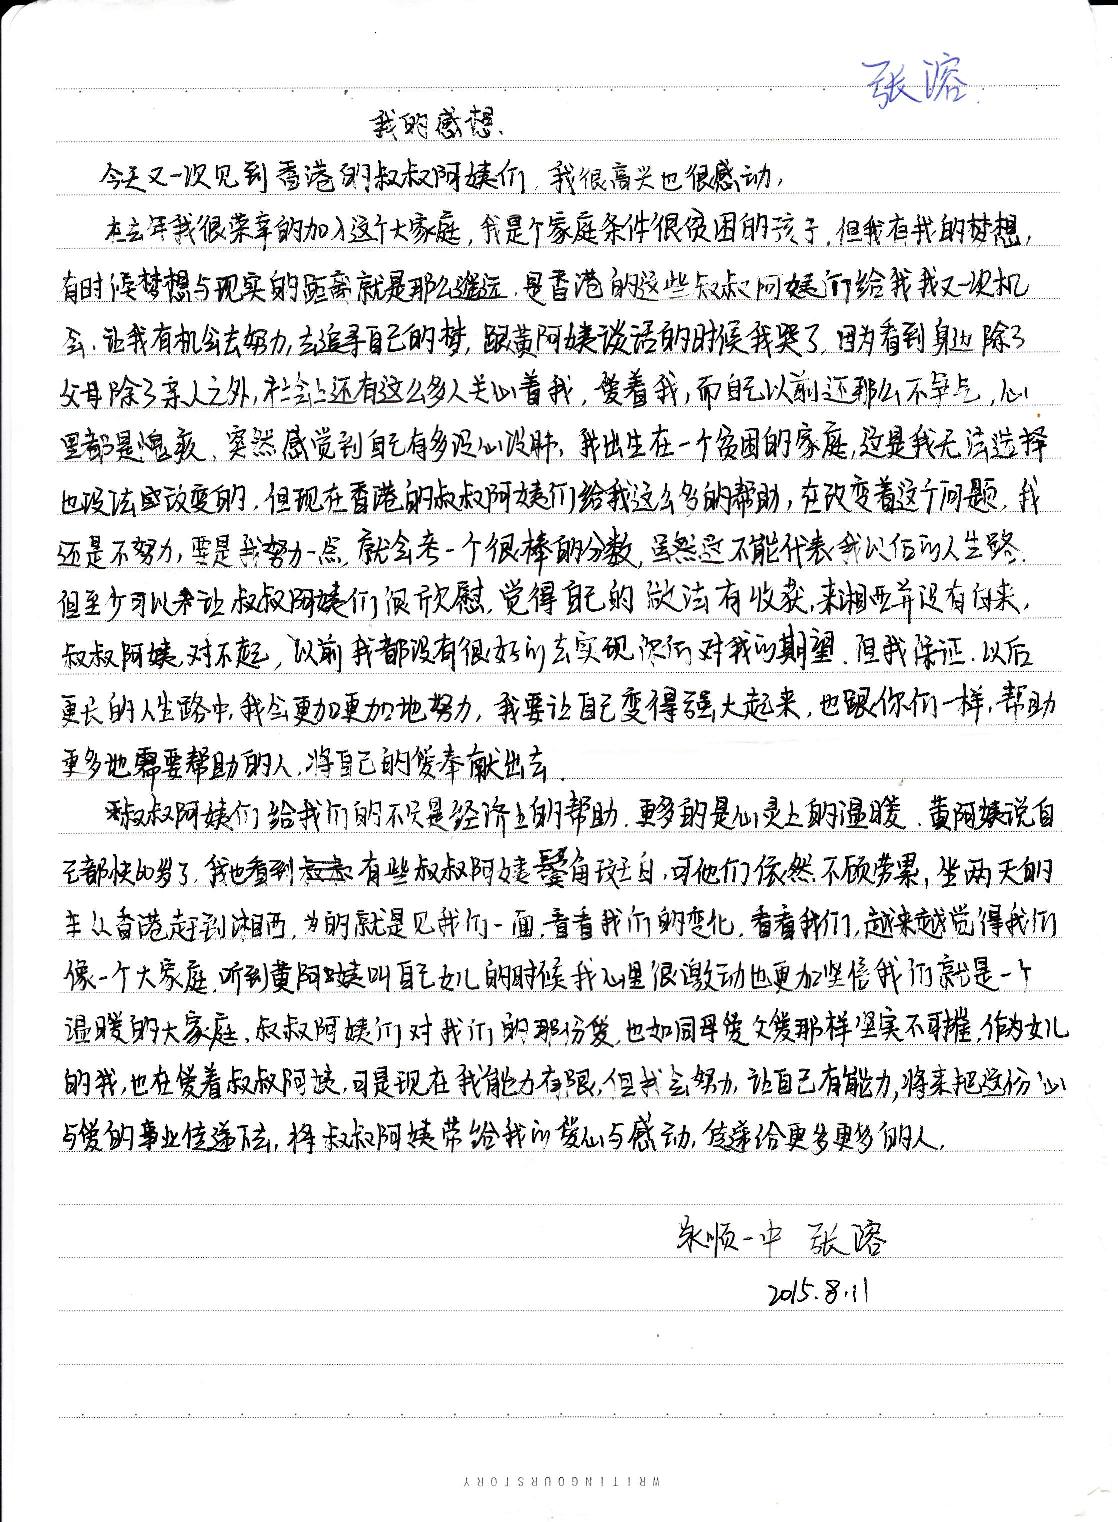 张溶
我的感想
今天又一次见到香港的叔叔阿姨们，我很高兴也很感动，
在去年我很荣幸的加入这个大家庭，我是个家庭条件很贫困的孩子，但我有我的梦想，
有时候梦想与现实的距离就是那么遥远，是香港的这些叔叔阿姨们给我我又一次机
会，让我有机会去努力，去追寻自己的梦，跟黄阿姨谈话的时候我哭了，因为看到身边除了
父母除了亲人之外，社会上还有这么多人关心着我，爱着我，而自己以前还那么不争气，心
里都是愧疚，突然感觉到自己有多没心没肺，我出生在一个贫困的家庭，这是我无法选择
也没法改变的，但现在香港的叔叔阿姨们给我这么多的帮助，在改变着这个问题，我
还是不努力，要是我努力一点，就会考一个很棒的分数，虽然这不能代表我以后的人生路，
但至少可以让叔叔阿姨们很欣慰，觉得自己的做法有收获，来湘西并没有白来，
叔叔阿姨，对不起，以前我都没有很好的去实现你们对我的期望，但我保证，以后
更长的人生路中，我会更加更加地努力，我要让自己变得强大起来，也跟你们一样，帮助
更多地需要帮助的人，将自己的爱奉献出去。
叔叔阿姨们给我们的不只是经济上的帮助，更多的是心灵上的温暖，黄阿姨说自
己都快60岁了，我也看到有些叔叔阿姨鬓角斑白，可他们依然不顾劳累，坐两天的
车从香港赶到湘西，为的就是见我们一面，看看我们的变化，看看我们，越来越觉得我们
像一个大家庭，听到黄阿姨叫自己女儿的时候我心里很激动也更加坚信我们就是一个
温暖的大家庭，叔叔阿姨们对我们的那份爱，也如同母爱父爱那样坚实不可摧，作为女儿
的我，也在爱着叔叔阿姨，可是现在我能力有限，但我会努力，让自己有能力，将来把这份心
与爱的事业传递下去，将叔叔阿姨带给我的爱心与感动，传递给更多更多的人，
永顺一中 张溶
2015.8.11
WRITINGOURSTORY